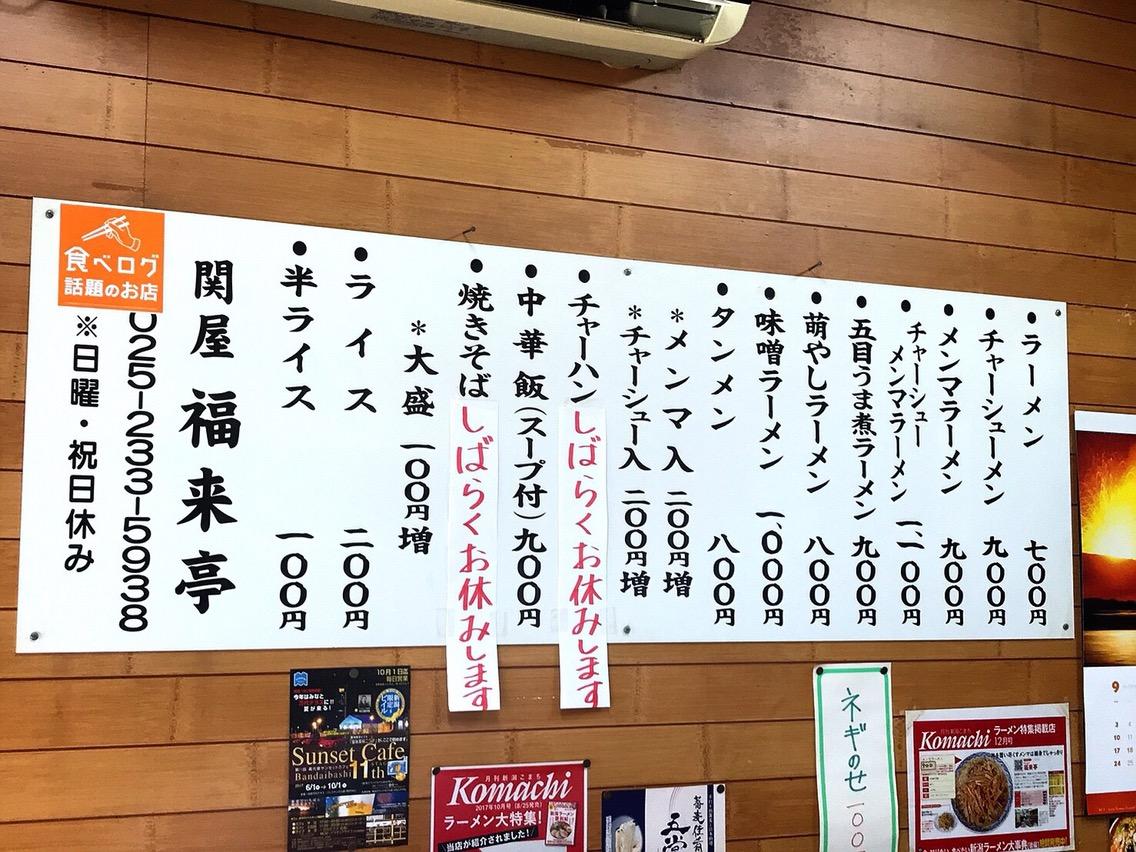 ●ラーメン 七〇〇円
●チャーシューメン 九〇〇円
●メンマラーメン 九〇〇円
●チャーシュー
メンマラーメン 一、一〇〇円
●五目うま煮ラーメン 九〇〇円
●萌やしラーメン 八〇〇円
●味噌ラーメン 一、〇〇〇円
●タンメン 八〇〇円
＊メンマ入 二〇〇円増
＊チャーシュー入 二〇〇円増
●チャーハン
しばらくお休みします
●中華飯(スープ付)九〇〇円
●焼きそば
しばらくお休みします
＊大盛 一〇〇円増
●ライス 二〇〇円
●半ライス 一〇〇円
関屋 福来亭
025-233-5938
※日曜・祝日休み
食べログ
話題のお店
10月1日迄
毎日営業
Sunset Cafe
Bandaibashi 11th
6/1 10/1
月刊新潟こまち
Komachi
2017年10月号(8/25発売)
ラーメン大特集!
当店が紹介されました!
ネギのせ 一〇〇
月刊新潟こまち
Komachi
ラーメン特集掲載店
12月号
新潟ラーメン大事典
9
3
10
17
24